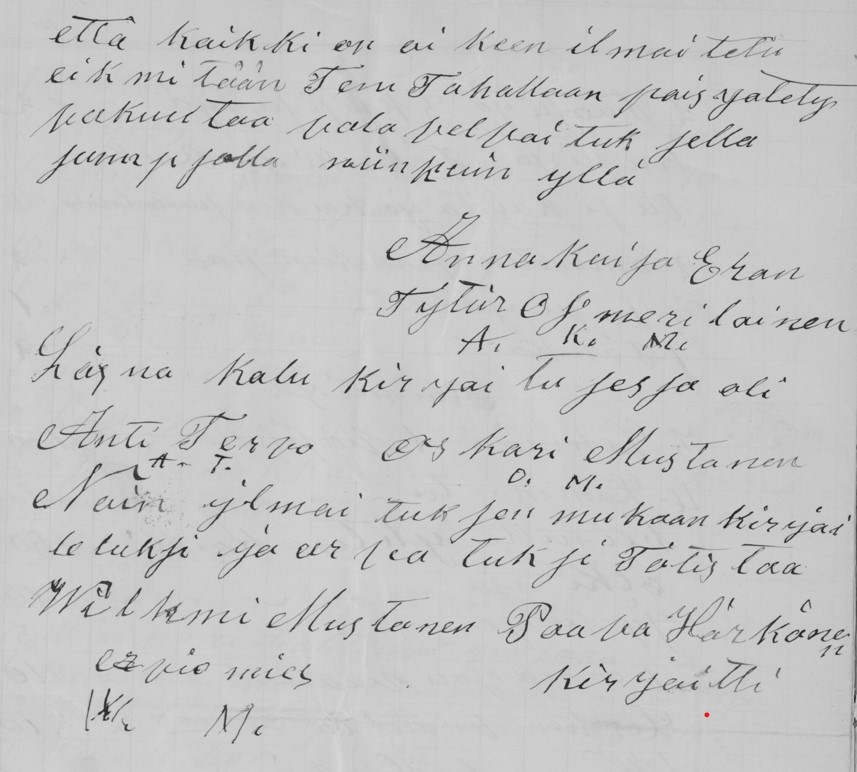 että kaikki on oi keen ilmai tetu
eik mi tään Temä Tahallaan pois jätety
vakuu taa vala velvoi tuk sella
junip jolla niin kuin yllä
Anna Kaisa Eran
Tytär O S meri lainen
A. K. M.
Läsna kalu kir jai tu sessa oli
Anti Tervo Os kari Mustanen
A. T. O. M.
Näin ylmai tuk sen mukaan kirjai
letuksi ja ar va tuksi Totis taa
Wilkmi Mustanen Paava Härkönen
ar vio mies kirjaitti
W. M.